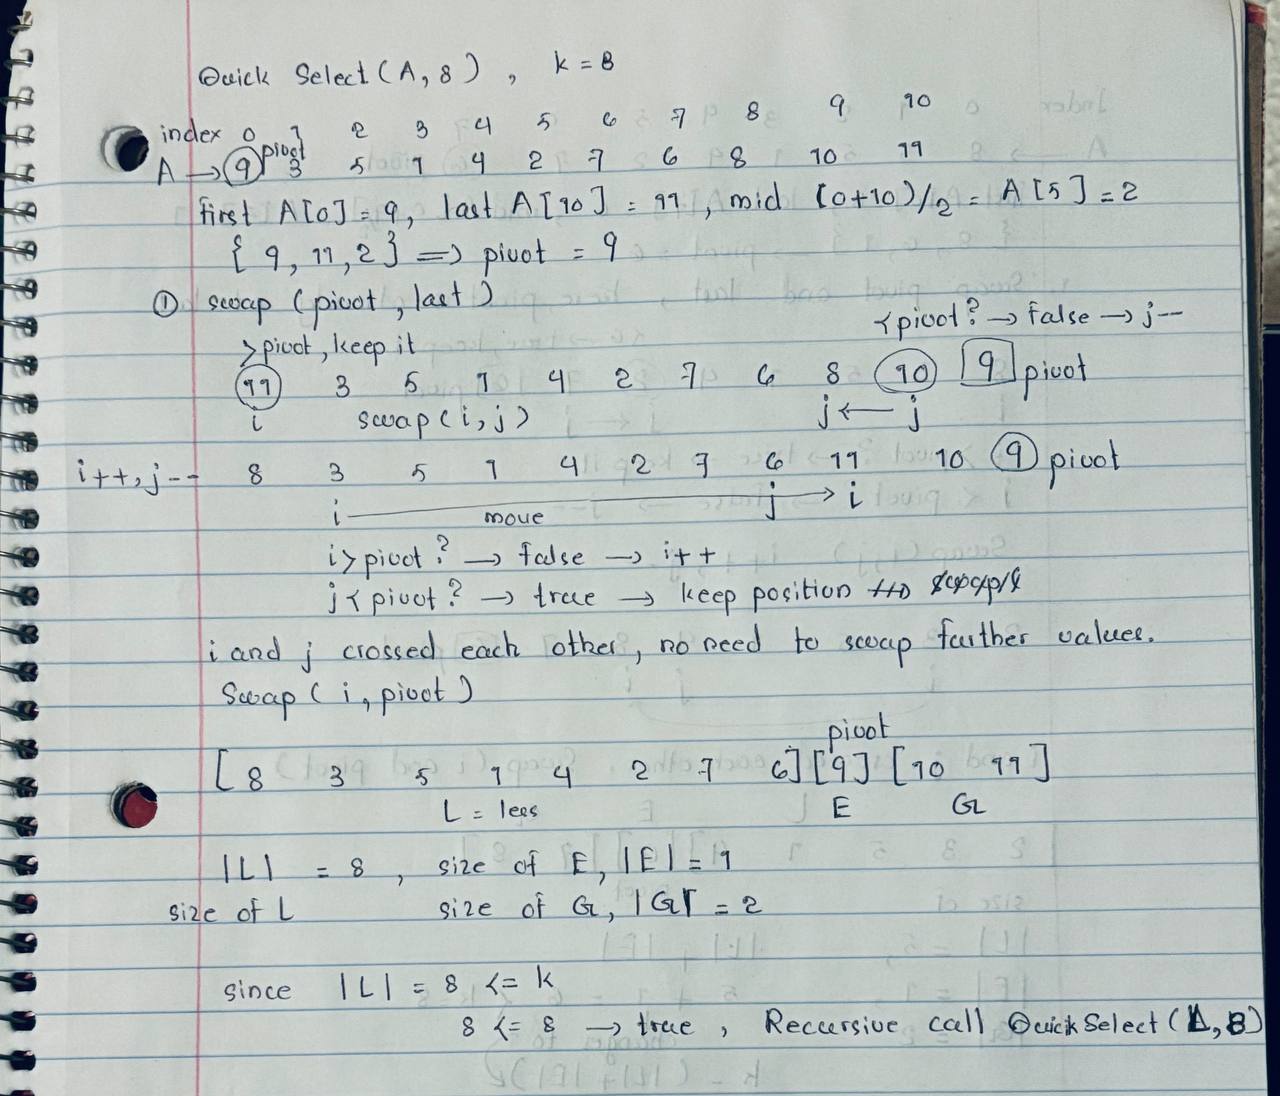 Quick Select (A, 8) , k = 8
index 0 1 2 3 4 5 6 7 8 9 10
A → 9 pivot 3 5 1 4 2 7 6 8 10 11
first A[0] = 9, last A[10] = 11, mid (0+10)/2 = A[5] = 2
{ 9, 11, 2 } => pivot = 9
① swap (pivot, last)
< pivot? → false → j--
> pivot, keep it
11 3 5 1 4 2 7 6 8 10 9 pivot
i swap (i, j) j ← j
i++, j-- 8 3 5 1 4 2 7 6 11 10 9 pivot
i move j → i
i > pivot? → false → i++
j < pivot? → true → keep position
i and j crossed each other, no need to swap further values.
Swap (i, pivot)
pivot
[ 8 3 5 1 4 2 7 6] [9] [10 11 ]
L = less E G
|L| = 8 , size of E, |E| = 1
size of L size of G, |G| = 2
since |L| = 8 <= k
8 <= 8 → true , Reccursive call QuickSelect (L, 8)